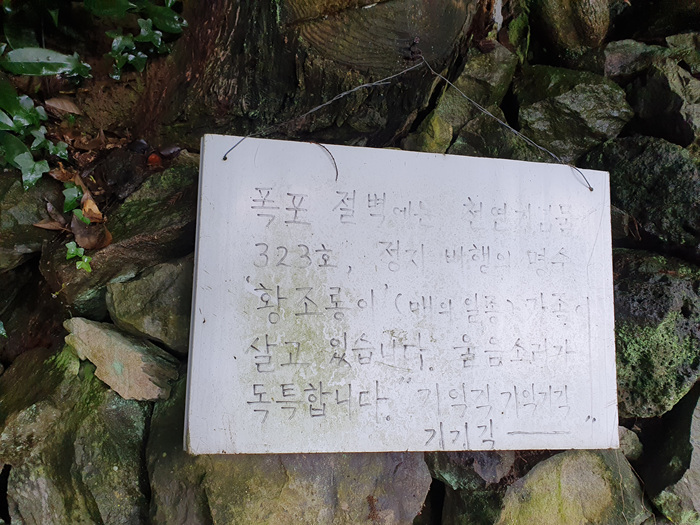 폭포 절벽에는 천연기념물
323호, 정지 비행의 명수
'황조롱이' (매의 일종) 가족이
살고 있습니다. 울음소리가
독특합니다. "끼약끽, 끼약끼끽
끼끼끽 ——"